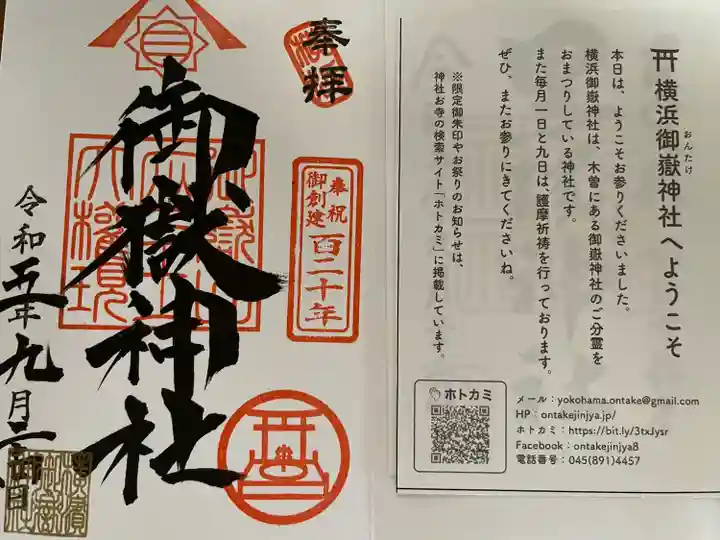 ⛩横浜御嶽神社へようこそ
おんたけ
本日は、ようこそお参りくださいました。
横浜御嶽神社は、木曽にある御嶽神社のご分霊を
おまつりしている神社です。
また毎月一日と九日は、護摩祈祷を行っております。
ぜひ、またお参りにきてくださいね。
※限定御朱印やお祭りのお知らせは、
神社お寺の検索サイト「ホトカミ」に掲載しています。
ホトカミ
メール：yokohama.ontake@gmail.com
HP：ontakejinjya.jp/
ホトカミ：https://bit.ly/3txJysr
Facebook：ontakejinjya8
電話番号：045(891)4457
奉拝
奉祝
御創建
百二十年
御嶽神社
令和五年九月